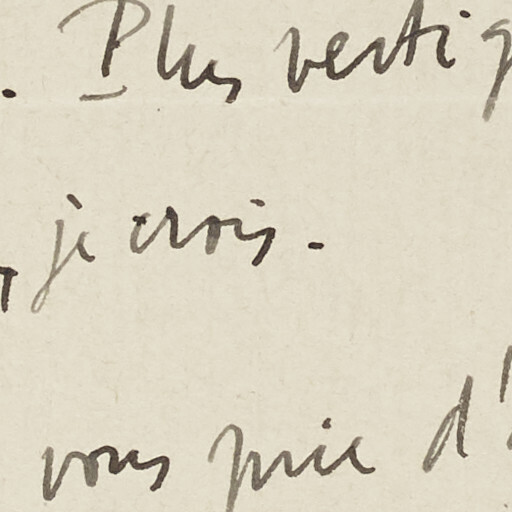 . Plus vertig
, je crois.
vous prie d'